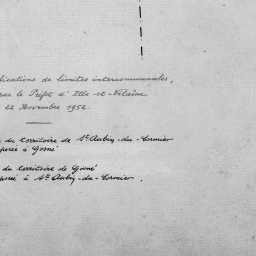 lications de limites intercommunales,
par le Préfet d'Ille-et-Vilaine
22 Novembre 1952.
du territoire de St Aubin-du-Cormier
à Gosné
du territoire de Gosné
à St Aubin-du-Cormier.